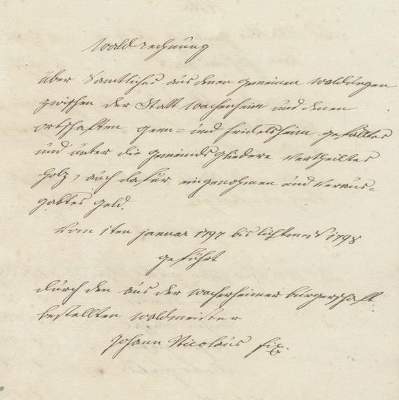 Wald rechnung
über Samtliches aus denen gemeinen Waldungen
zwischen der Statt Wachenheim und denen
ortschaften gern= und friedelsheim gefälltes
und unter die gemeinds gliedere Vertheiltes
holz, auch dafür eingenohmen und Veraus=
gabtes geld.
Vom 1ten januar 1797 bis lichtmeß 1798
geführt
durch den aus der wacherheimer bürgerschaft
bestellten waldmeister
Johann Nicolaus fix.